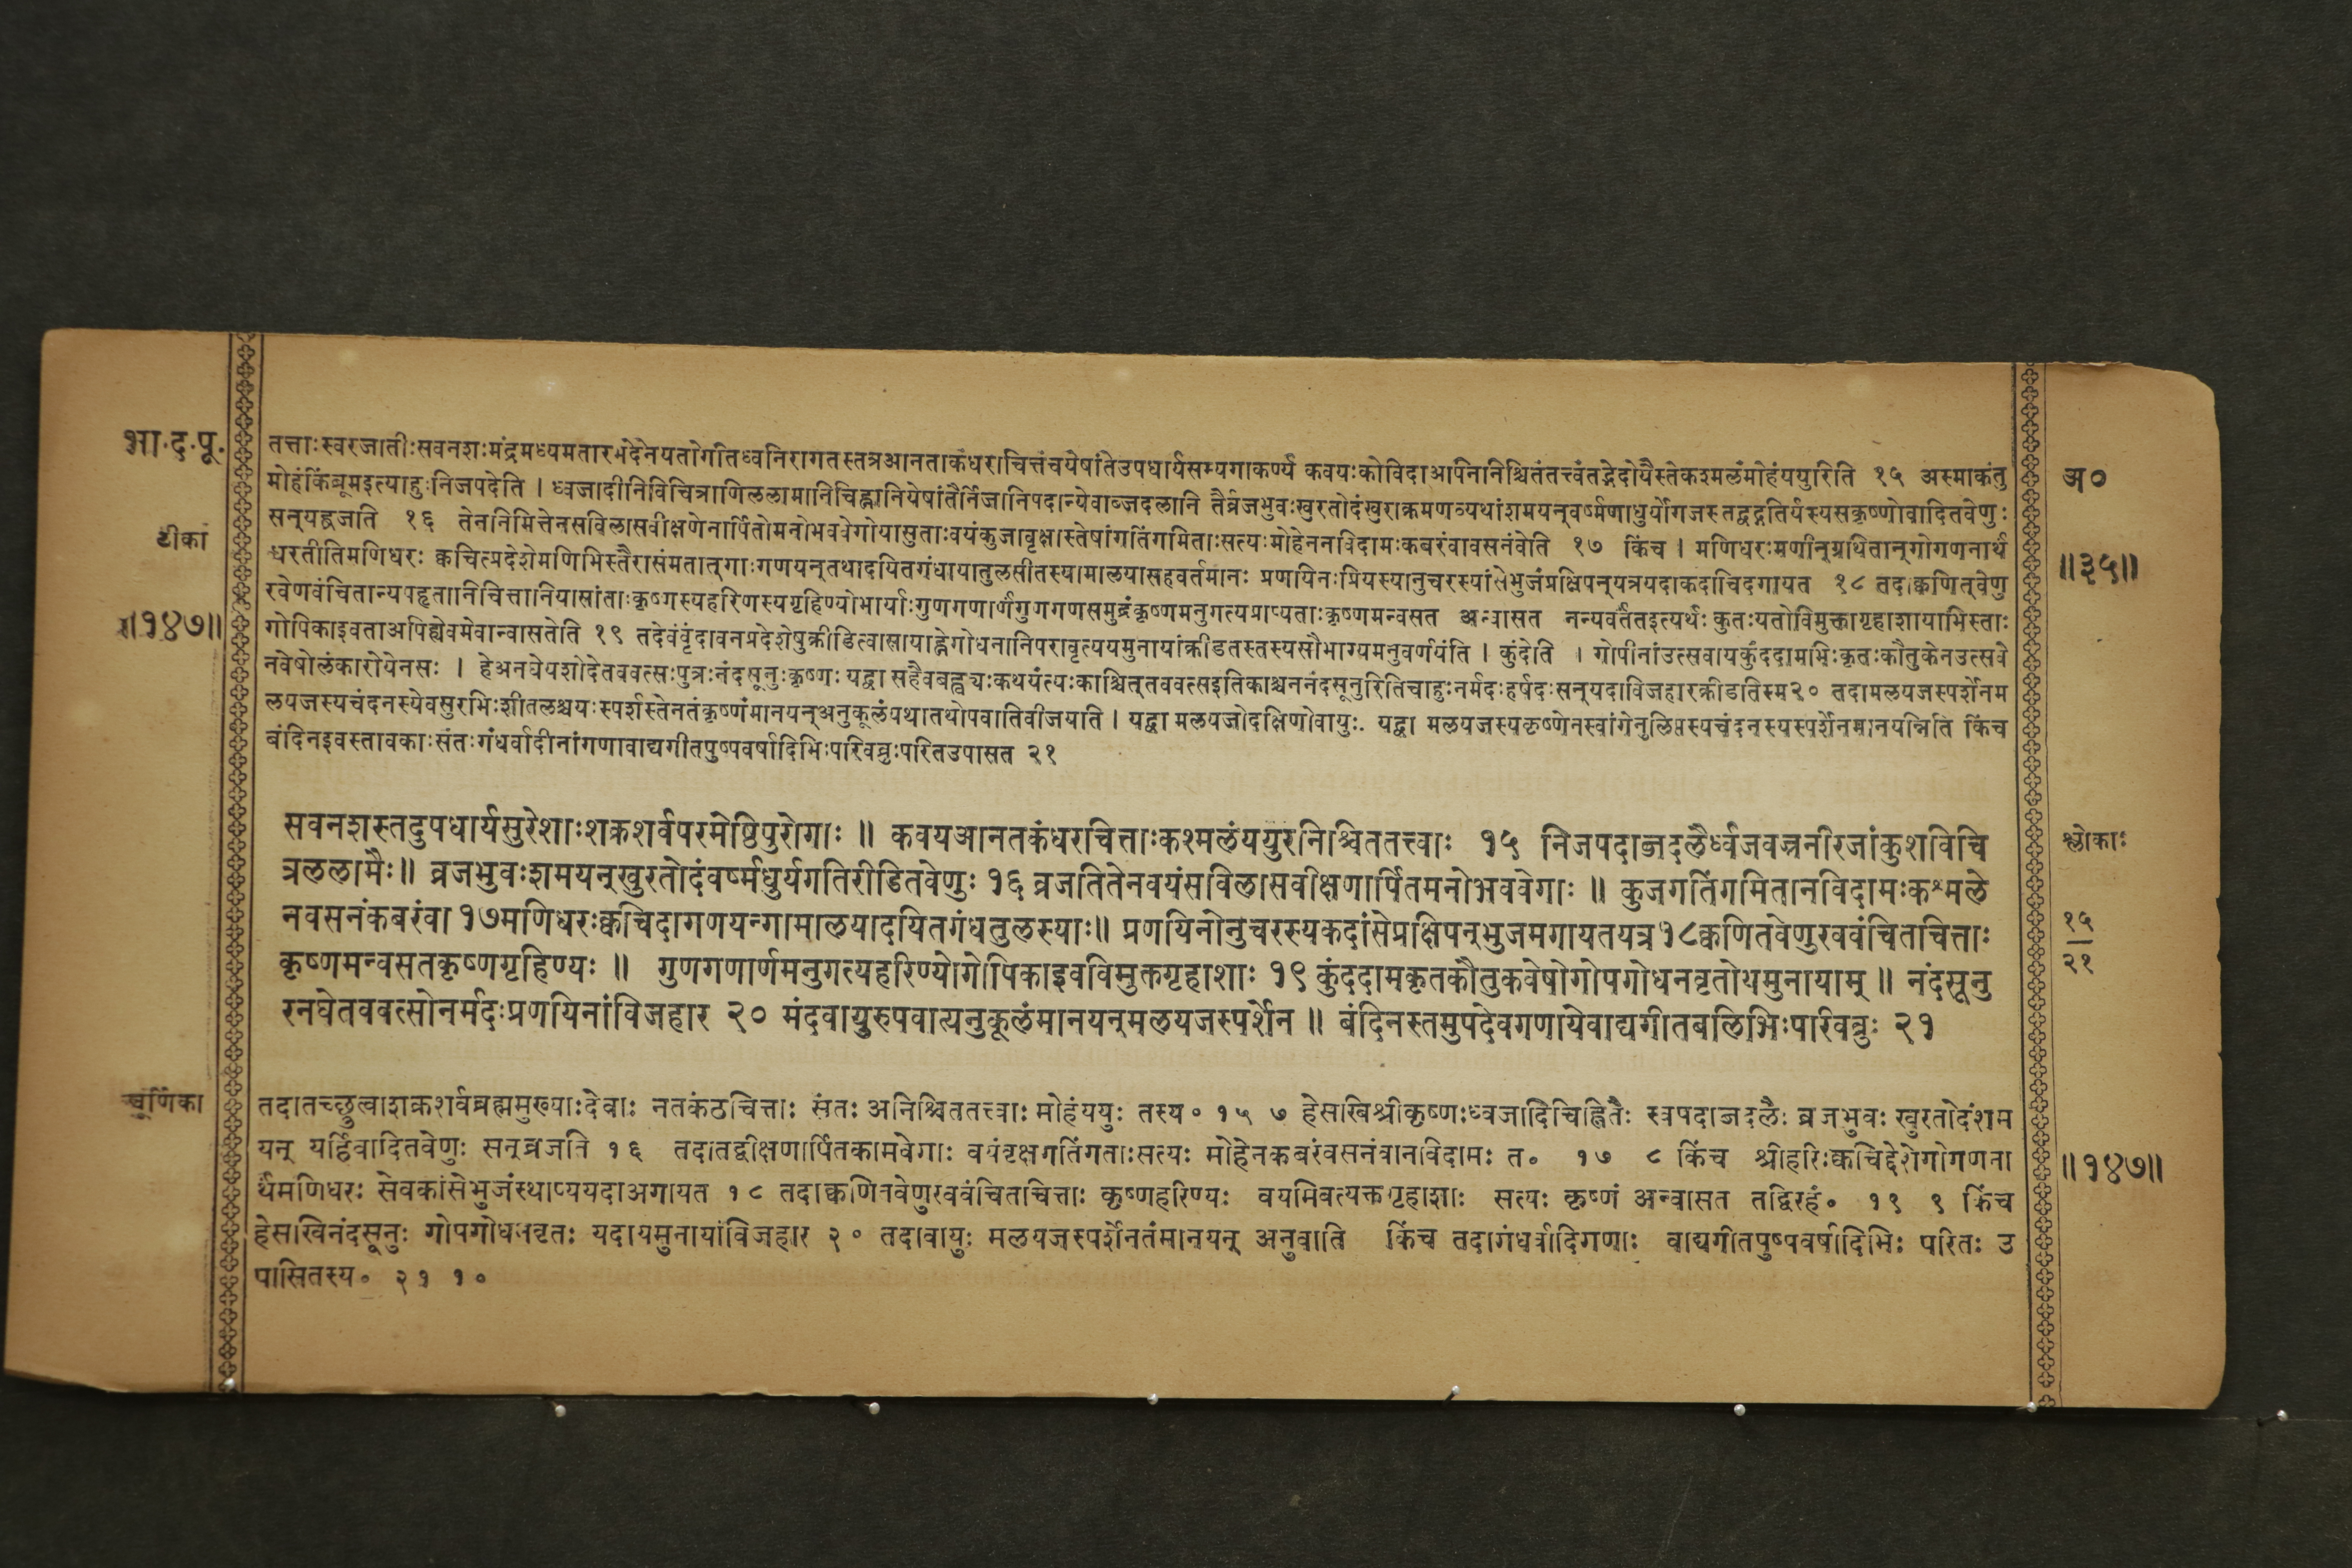 भा.द.पू.
टीका
॥१४७॥
तत्ताःस्वरजातीःसवनशःमंद्रमध्यमतारभेदेनयतोगीतिध्वनिरागतस्तत्रआनताकंधराचित्तंचयेषांतेउपधार्यसम्यगाकर्ण्य कवयःकोविदाअपिनानिश्चितंतत्त्वंतद्भेदोयैस्तेकश्मलंमोहंययुरिति १५ अस्माकंतु
मोहंकिंब्रूमइत्याहुःनिजपदेति । ध्वजादीनिविचित्राणिललामानिचिह्नानियेषांतैर्निजानिपदान्येवाब्जदलानि तैर्व्रजभुवःखुरतोदंखुराक्रमणव्यथांशमयन्वर्ष्मणाधुर्योगजस्तद्वद्गतिर्यस्यसकृष्णोवादितवेणुः
सन्यर्ह्यव्रजति १६ तेननिमित्तेनसविलासवीक्षणेनार्पितोमनोभववेगोयासुताःवयंकुजावृक्षास्तेषांगतिंगमिताःसत्यःमोहेननविदामःकबरंवावसनंवेति १७ किंच । मणिधरःमणीन्ग्रथितान्गोगणनार्थं
धरतीतिमणिधरः क्वचित्प्रदेशेमणिभिस्तैरासंमतात्गाःगणयन्तथादयितगंधायातुलसीतस्यामालयासहवर्तमानः प्रणयिनःप्रियस्यानुचरस्यांसेभुजंप्रक्षिपन्यत्रयदाकदाचिदगायत १८ तदाक्वणित्वेणु
रवेणवंचितान्यपहृतानिचित्तानियासांताःकृष्णस्यहरिणस्यगृहिण्योभार्याःगुणगणार्णंगुणगणसमुद्रंकृष्णमनुगत्यप्राप्यताःकृष्णमन्वसत अन्वासत नन्यवर्तंतइत्यर्थः कुतःयतोविमुक्तागृहाशायाभिस्ताः
गोपिकाइवताअपिह्येवमेवान्वासतेति १९ तदेवंवृंदावनप्रदेशेषुक्रीडित्वासायाह्नेगोधनानिपरावृत्ययमुनायांक्रीडतस्तस्यसौभाग्यमनुवर्णयंति । कुंदेति । गोपीनांउत्सवायकुंददामभिःकृतःकौतुकेनउत्सवे
नवेषोलंकारोयेनसः । हेअनघेयशोदेतववत्सःपुत्रःनंदसूनुःकृष्णः यद्वा सहैवबह्व्यःकथयंत्यःकाश्चित्तववत्सइतिकाश्चननंदसूनुरितिचाहुःनर्मदःहर्षदःसन्यदाविजहारक्रीडतिस्म२० तदामलयजस्पर्शेनम
लयजस्यचंदनस्येवसुरभिःशीतलश्चयःस्पर्शस्तेनतंकृष्णंमानयन्अनुकूलंयथातथोपवातिवीजयति । यद्वा मलयजोदक्षिणोवायुः. यद्वा मलयजस्यकृष्णेनस्वांगेनुलिप्तस्यचंदनस्यस्पर्शेनमानयन्निति किंच
बंदिनइवस्तावकाःसंतःगंधर्वादीनांगणावाद्यगीतपुष्पवर्षादिभिःपरिवव्रुःपरितउपासत २१
अ०
॥३५॥
सवनशस्तदुपधार्यसुरेशाःशक्रशर्वपरमेष्ठिपुरोगाः ॥ कवयआनतकंधराचित्ताःकश्मलंययुरनिश्चिततत्त्वाः १५ निजपदाब्जदलैर्ध्वजवज्रनीरजांकुशविचि
त्रललामैः॥ व्रजभुवःशमयन्खुरतोदंवर्ष्मधुर्यगतिरीडितवेणुः १६ व्रजतितेनवयंसविलासवीक्षणार्पितमनोभववेगाः ॥ कुजगतिंगमितानविदामःकश्मले
नवसनंकबरंवा १७मणिधरःक्वचिदागणयन्गामालयादयितगंधतुलस्याः॥ प्रणयिनोनुचरस्यकदांसेप्रक्षिपन्भुजमगायतयत्र१८क्वणितवेणुरववंचितचित्ताः
कृष्णमन्वसतकृष्णगृहिण्यः ॥ गुणगणार्णमनुगत्यहरिण्योगोपिकाइवविमुक्तगृहाशाः १९ कुंददामकृतकौतुकवेषोगोपगोधनवृतोयमुनायाम् ॥ नंदसूनु
रनघेतववत्सोनर्मदःप्रणयिनांविजहार २० मंदवायुरुपवात्यनुकूलंमानयन्मलयजस्पर्शेन ॥ बंदिनस्तमुपदेवगणायेवाद्यगीतबलिभिःपरिवव्रुः २१
श्लोकाः
१५
२१
चूर्णिका
तदातच्छ्रुत्वाशक्रशर्वब्रह्ममुख्याःदेवाः नतकंठचित्ताः संतः अनिश्चिततत्त्वाः मोहंययुः तस्य० १५ ७ हेसखिश्रीकृष्णःध्वजादिचिह्नितैः स्वपदाब्जदलैः व्रजभुवः खुरतोदंशम
यन् यर्हिवादितवेणुः सन्व्रजति १६ तदातद्वीक्षणार्पितकामवेगाः वयंवृक्षगतिंगताःसत्यः मोहेनकबरंवसनंवानविदामः त० १७ ८ किंच श्रीहरिःक्वचिद्देशेगोगणना
र्थंमणिधरः सेवकांसेभुजंस्थाप्ययदाअगायत १८ तदाक्वणितवेणुरववंचितचित्ताः कृष्णहरिण्यः वयमिवत्यक्तगृहाशाः सत्यः कृष्णं अन्वासत तद्विरहं० १९ ९ किंच
हेसखिनंदसूनुः गोपगोधनवृतः यदायमुनायांविजहार २० तदावायुः मलयजस्पर्शेनतंमानयन् अनुवाति किंच तदागंधर्वादिगणाः वाद्यगीतपुष्पवर्षादिभिः परितः उ
पासितस्य० २१ १०
॥१४७॥